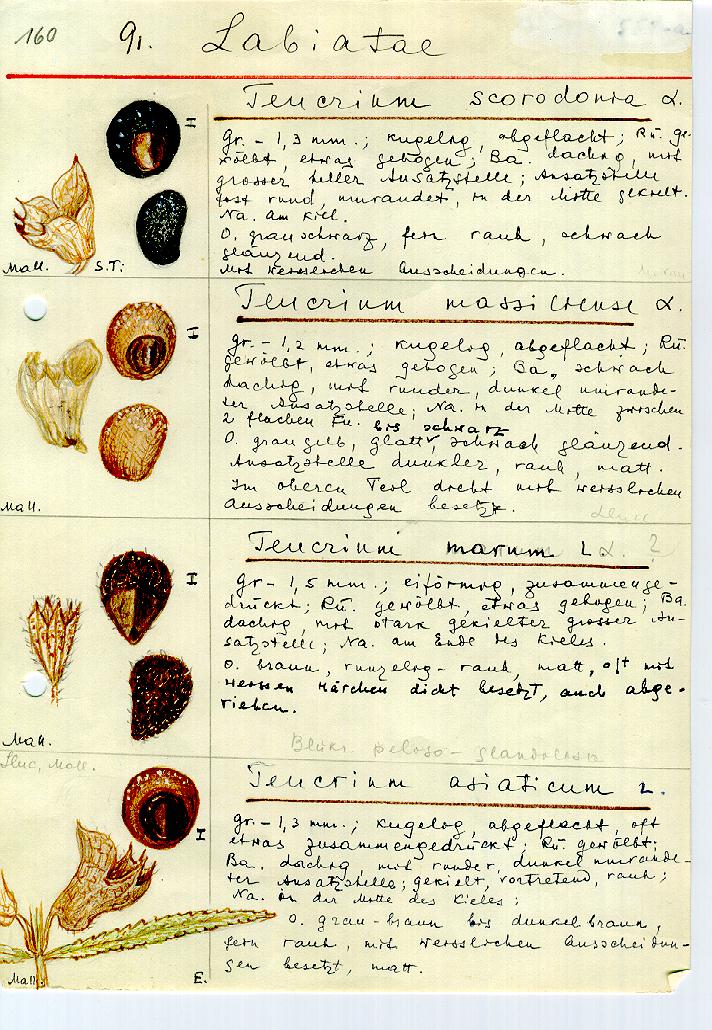 160 91. Labiatae
Teucrium scorodonia L.
Gr. - 1,3 mm.; kugelog, abgeflacht; Rü. ge-
wölbt, etwas gebogen; Ba. dachig, mit
grosser heller Ansatzstelle; Ansatzstelle
fast rund, umrandet, in der Mitte gekielt.
Na. am Kiel.
O. grauschwarz, fein rauh, schwach
glänzend.
Mit weisslichen Ausscheidungen.
Mall. S.T:
Teucrium massiliense L.
Gr. - 1,2 mm.; kugelig, abgeflacht; Rü.
gewölbt, etwas gebogen; Ba. schwach
dachig, mit runder, dunkel umrande-
ter Ansatzstelle; Na. in der Mitte zwischen
2 flachen Fu.
bis schwarz
O. graugelb, glatt, schwach glänzend.
Ansatzstelle dunkler, rauh, matt.
Im oberen Teil dicht mit weisslichen
Ausscheidungen besetzt.
Mall.
Teucrium marum L. ?
Gr - 1,5 mm.; eiförmig, zusammenge-
drückt; Rü. gewölbt, etwas gebogen; Ba.
dachig, mit stark gekielter grosser An-
satzstelle; Na. am Ende des Kieles.
O. braun, runzelig-rauh, matt, oft mit
weissen Härchen dicht besetzt, auch abge-
rieben.
Mall.
peloso-glandolosa
Mall.
Teucrium asiaticum L.
Gr. - 1,3 mm.; kugelig, abgeflacht, oft
etwas zusammengedrückt; Rü gewölbt;
Ba. dachig, mit runder, dunkel umrande-
ter Ansatzstelle; gekielt, vortretend, rauh;
Na. in der Mitte des Kieles;
O. grau-braun bis dunkelbraun,
fein rauh, mit weisslichen Ausscheidun-
gen besetzt, matt.
Mall. E.
I
I
I
I